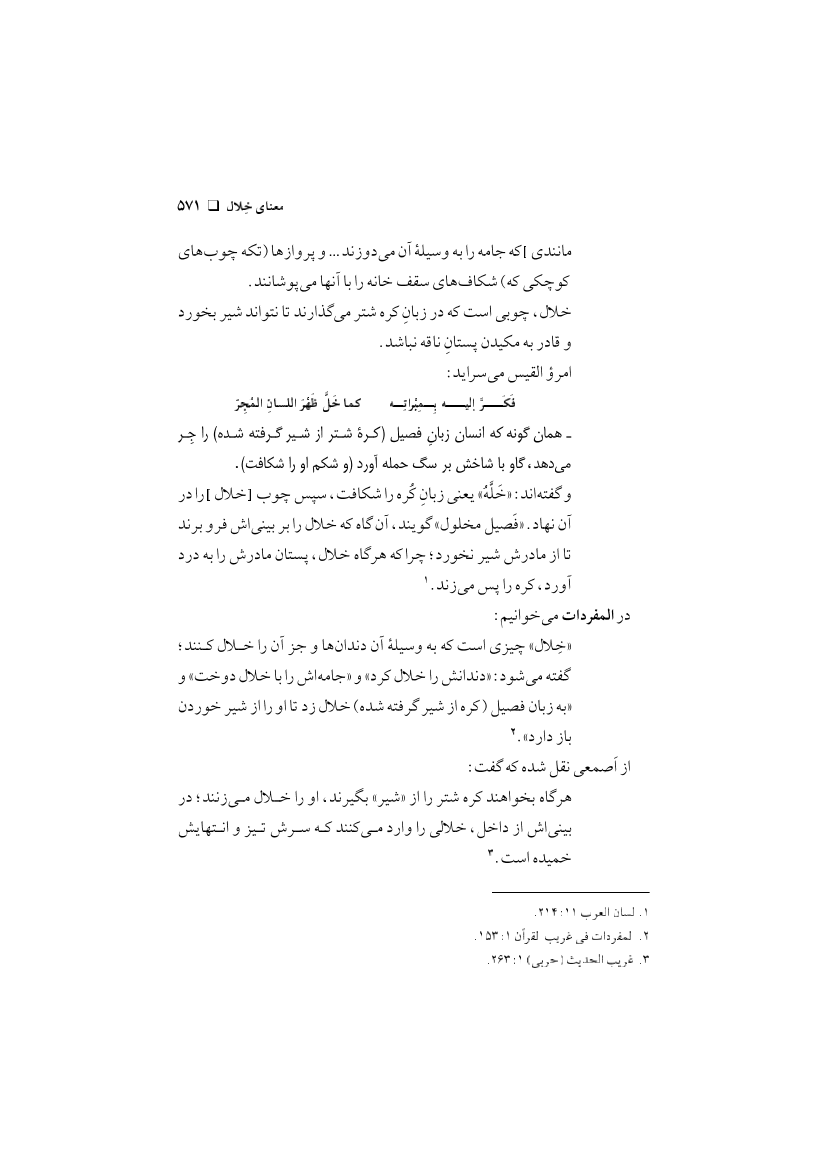 معنای خِلال ❑ ۵۷۱
مانندی] که جامه را به وسیلهٔ آن می‌دوزند ... و پروازها (تکه چوب‌های
کوچکی که) شکاف‌های سقف خانه را با آنها می‌پوشانند.
خلال، چوبی است که در زبانِ کره شتر می‌گذارند تا نتواند شیر بخورد
و قادر به مکیدن پستانِ ناقه نباشد.
امرؤ القیس می‌سراید:
فَکَـــرَّ إلیـــه بِــمِبْراتِــه کما خَلَّ ظَهْرَ اللسانِ المُجِرّ
ـ همان گونه که انسان زبانِ فصیل (کرهٔ شتر از شیر گرفته شده) را جِر
می‌دهد، گاو با شاخش بر سگ حمله آورد (و شکم او را شکافت).
و گفته‌اند: «خَلَّهُ» یعنی زبانِ کُره را شکافت، سپس چوب [خلال] را در
آن نهاد. «فَصیل مخلول» گویند، آن گاه که خلال را بر بینی‌اش فرو برند
تا از مادرش شیر نخورد؛ چرا که هرگاه خلال، پستان مادرش را به درد
آورد، کره را پس می‌زند.۱
در المفردات می‌خوانیم:
«خِلال» چیزی است که به وسیلهٔ آن دندان‌ها و جز آن را خلال کنند؛
گفته می‌شود: «دندانش را خلال کرد» و «جامه‌اش را با خلال دوخت» و
«به زبان فصیل (کره از شیر گرفته شده) خلال زد تا او را از شیر خوردن
باز دارد».۲
از اَصمعی نقل شده که گفت:
هرگاه بخواهند کره شتر را از «شیر» بگیرند، او را خلال می‌زنند؛ در
بینی‌اش از داخل، خلالی را وارد می‌کنند که سرش تیز و انتهایش
خمیده است.۳
۱. لسان العرب ۱۱: ۲۱۴.
۲. لمفردات فی غریب لقرآن ۱: ۱۵۳.
۳. غریب الحدیث (حربی) ۱: ۲۶۳.